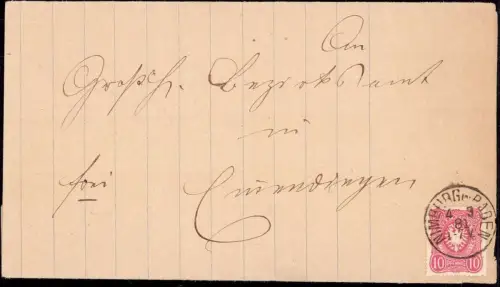 An
Großh. Bezirksamt
in
frei
Emmendingen
NIMBURG-BADEN
4 3
81
10 10